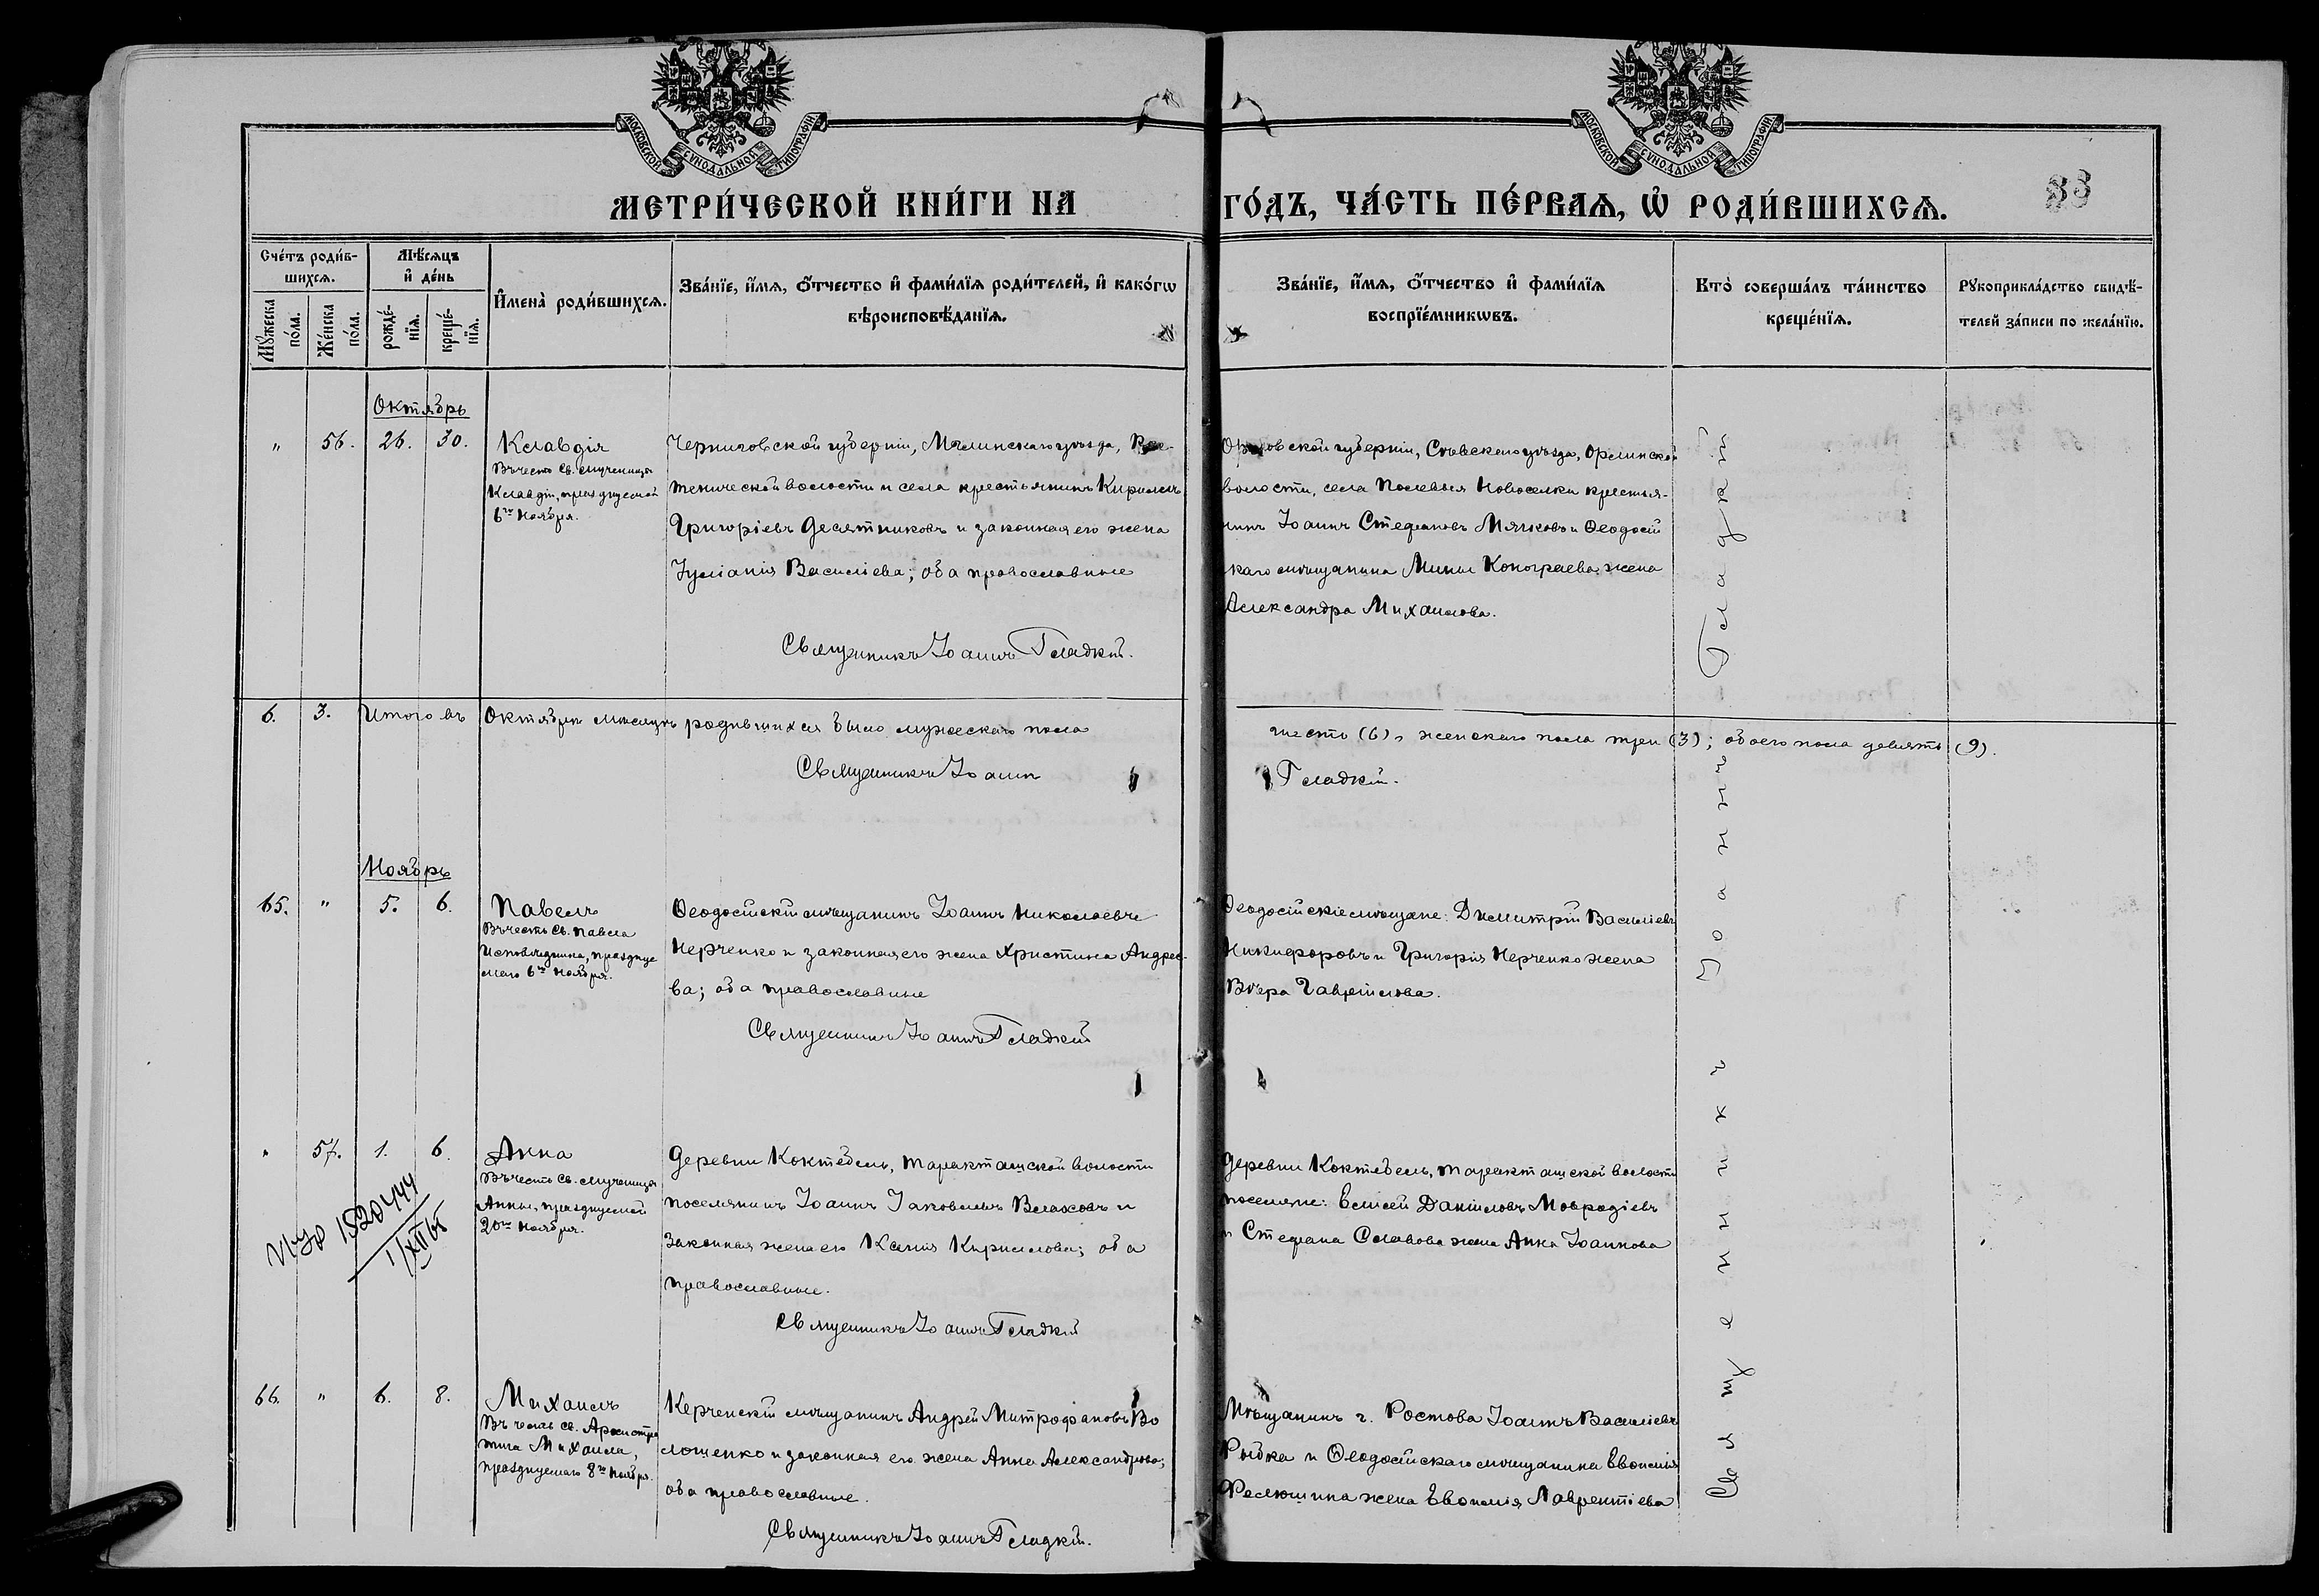 МОСКОВСКОЙ СѴНОДАЛЬНОЙ ТИПОГРАФІИ
МОСКОВСКОЙ СѴНОДАЛЬНОЙ ТИПОГРАФІИ
МЕТРИ́ЧЕСКОЙ КНИ́ГИ НА ГО́ДЪ, ЧА́СТЬ ПЕ́РВАѦ, Ѡ҆ РОДИ́ВШИХСѦ.
33
Сче́тъ роди́в-
шихсѧ.
Мѣ́сѧцъ
и҆ де́нь
Мꙋ́жеска
по́ла.
Же́нска
по́ла.
рожде́-
нїѧ.
креще́-
нїѧ.
И҆мена̀ роди́вшихсѧ.
Зва́нїе, и҆́мѧ, ѻ҆́тчество и҆ фами́лїѧ роди́телей, и҆ како́гѡ
вѣроисповѣ́данїѧ.
Зва́нїе, и҆́мѧ, ѻ҆́тчество и҆ фами́лїѧ
воспрїе́мникѡвъ.
Кто̀ соверша́лъ та́инство
креще́нїѧ.
Рꙋкоприкла́дство свидѣ́-
телей за́писи по жела́нїю.
Октябрь
" 56. 26. 30.
Клавдія
Въ честь Св. мученицы
Клавдіи, празднуемой
6го Ноября.
Черниговской губерніи, Мглинскаго уѣзда,
волости и села крестьянинъ Кириллъ
Григоріевъ Десятниковъ и законная его жена
Іуліанія Василіева; оба православные
Священникъ Іоаннъ Гладкій.
Орловской губерніи, Сѣвскаго уѣзда, Орлинской
волости, села Полевыя Новоселки крестья-
нинъ Іоаннъ Стефановъ Мячковъ и Ѳеодосій
скаго мѣщанина Мины Конограева жена
Александра Михаилова.
6. 3. Итого въ Октябрѣ мѣсяцѣ родившихся было мужескаго пола
шесть (6), женскаго пола три (3); обоего пола девять (9).
Священникъ Іоаннъ
Гладкій.
Ноябрь
65. " 5. 6.
Павелъ
Въ честь Св. Павла
Исповѣдника, праздне
маго 6го Ноября.
Ѳеодосійскій мѣщанинъ Іоаннъ Николаевъ
Нерченко и законная его жена Христина Андрее-
ва; оба православные
Священникъ Іоаннъ Гладкій
Ѳеодосійскіе мѣщане: Димитрій Василіевъ
Никифоровъ и Григорія Нерченко жена
Вѣра Гавріилова.
" 57. 1. 6.
Анна
Въ честь Св. мученицы
Анны, празднуемой
20го Ноября.
1520444
1/XII 65
Деревни Коктебель, Таракташской волости
поселянинъ Іоаннъ Іаковлевъ Влаховъ и
законная жена его Ксенія Кириллова; оба
православные.
Священникъ Іоаннъ Гладкій
Деревни Коктебель, Таракташской волости
поселяне: Елисей Даніиловъ Мавродіевъ
и Стефана Славова жена Анна Іоаннова
66. " 6. 8.
Михаилъ
Въ честь Св. Архистра
тига Михаила,
празднуемаго 8го Ноября.
Керченскій мѣщанинъ Андрей Митрофановъ Во
лошенко и законная его жена Анна Александрова;
оба православные.
Священникъ Іоаннъ Гладкій.
Мѣщанинъ г. Ростова Іоаннъ Василіевъ
Рыбка и Ѳеодосійскаго мѣщанина
жена Евѳимія Лаврентіева
Священникъ Іоаннъ Гладкій